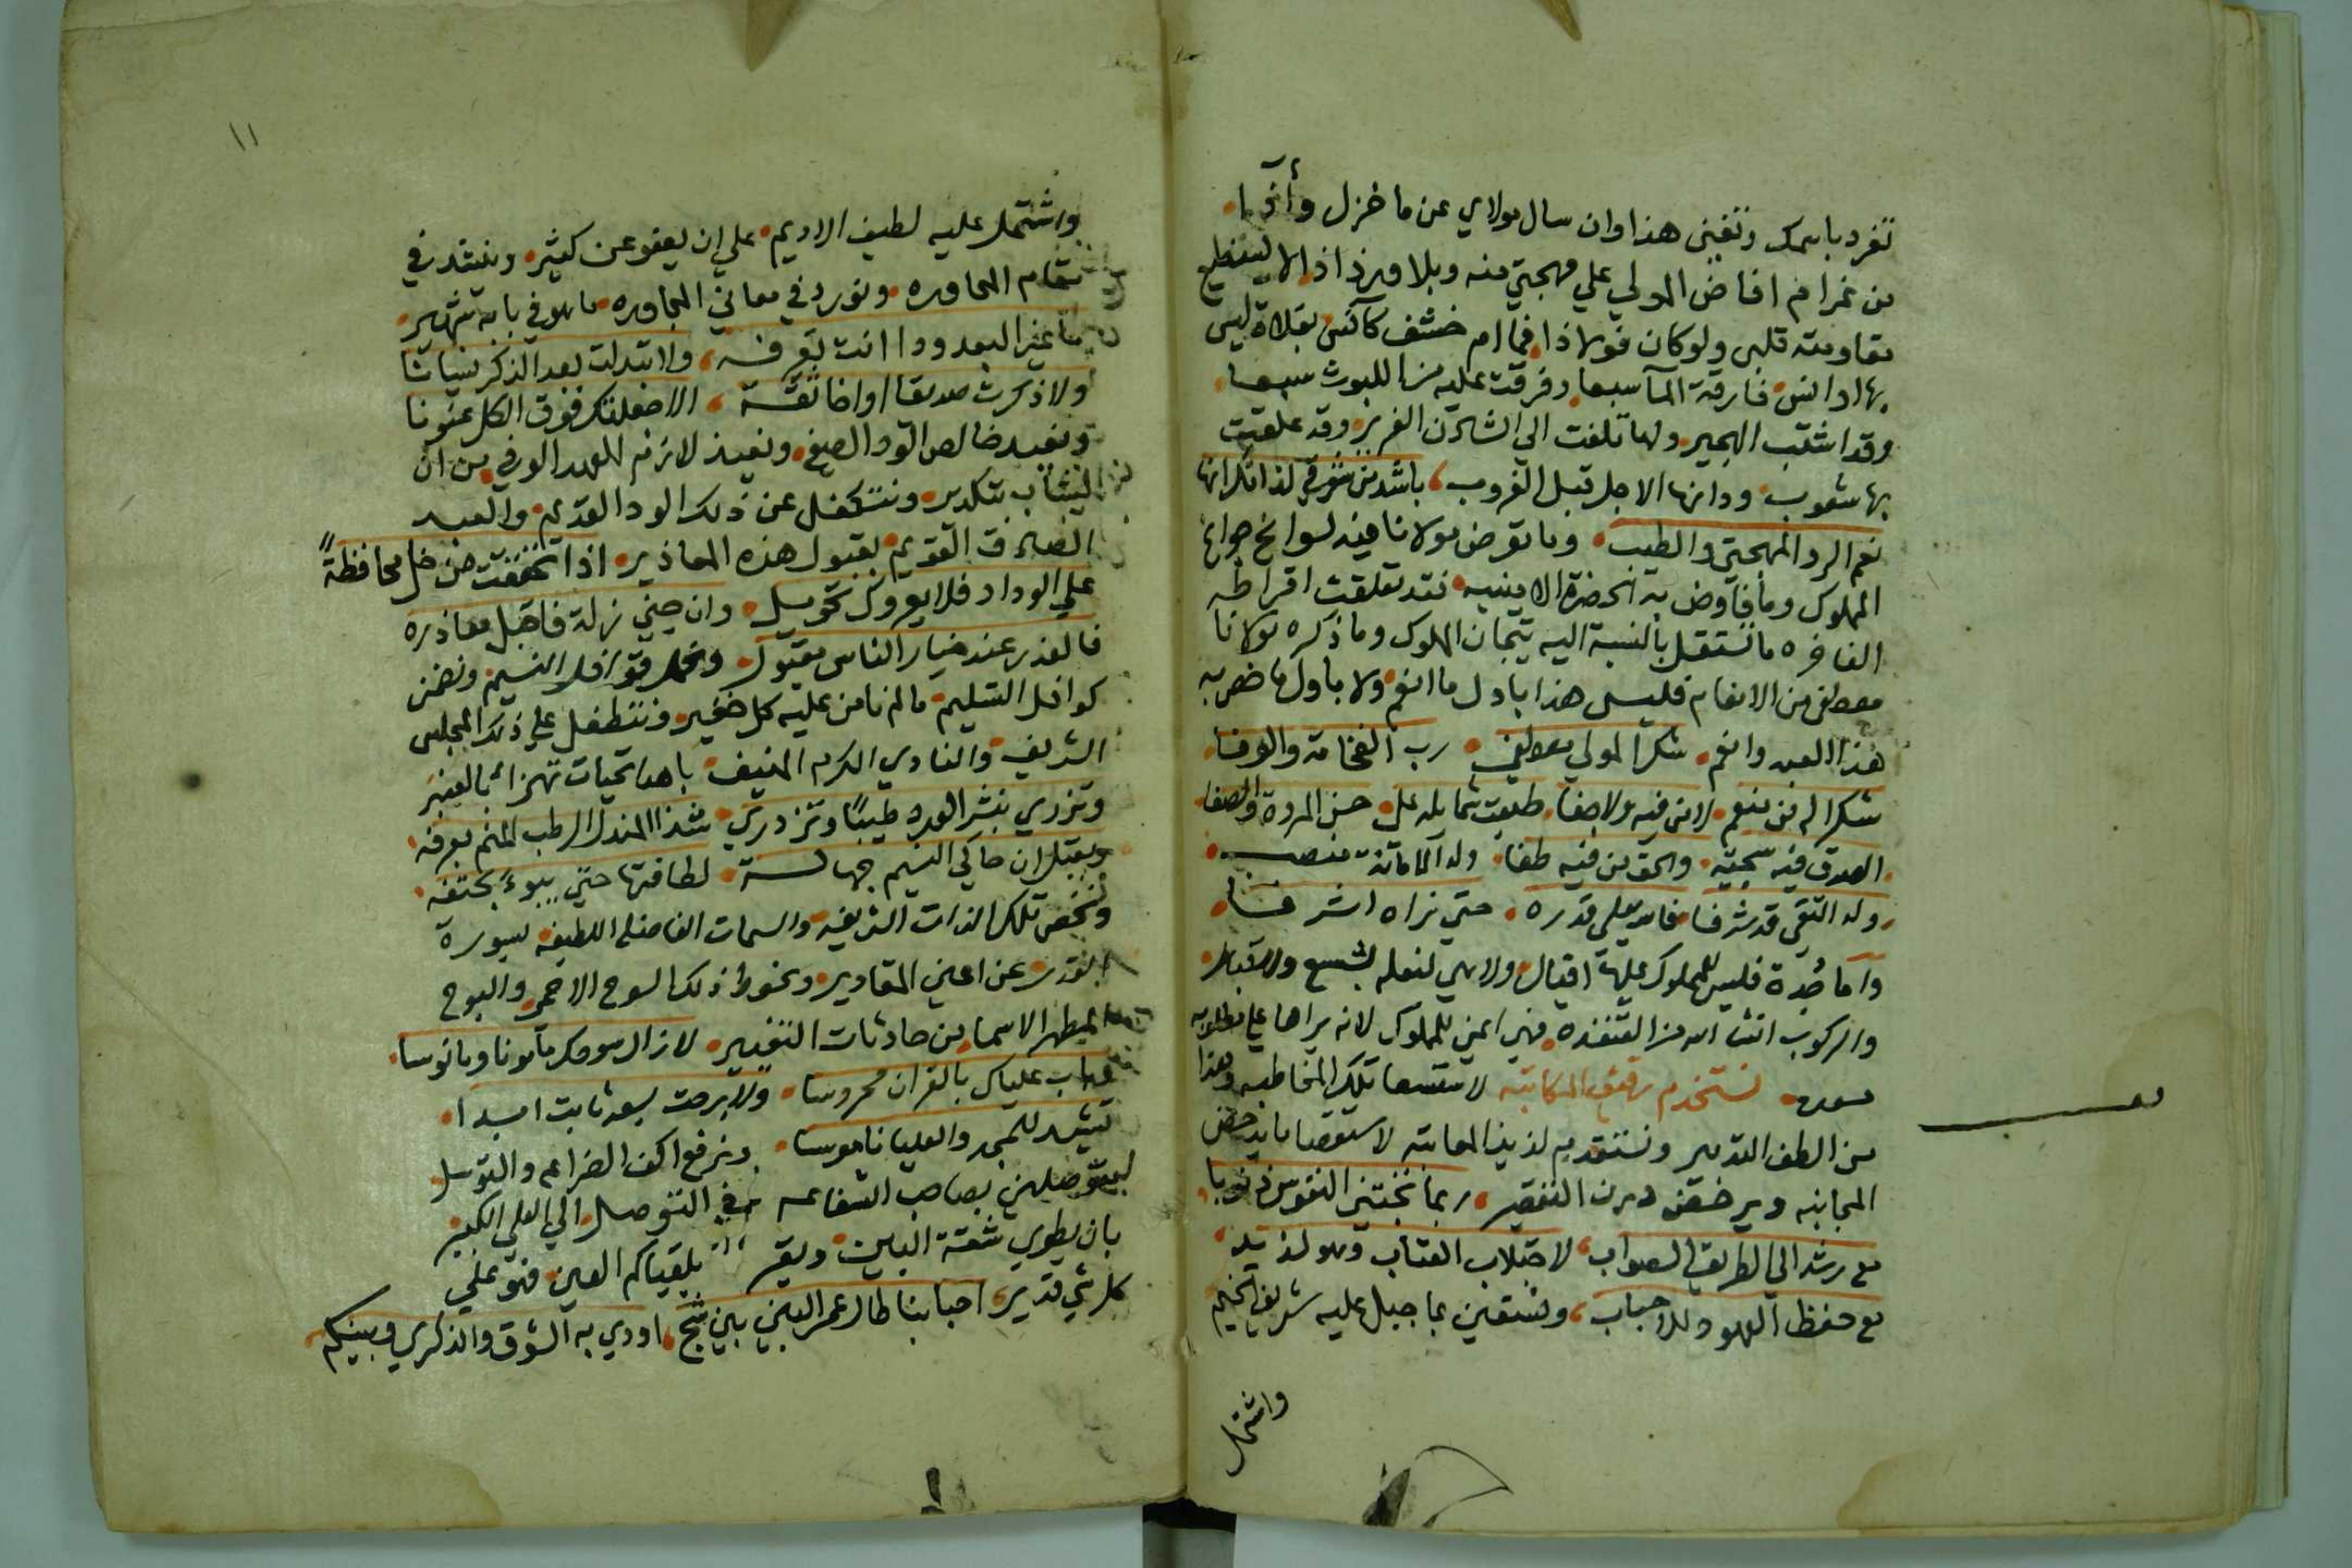 تفرد باسمك وتغنى هذا وان سال مولاي عن ما خزل وأثرا
من غرام افاض المولي علي مهجتي منه وبلا ورذاذا لا ليستطيع
مقاومته قلبي ولو كان فولاذا فما ام خشف كآنس بفلاة ليس
بها اوانس فارقة المآ سبعا وفرقت عليه من الليوث سبعا
وقد اشتب الهجير ولها تلفت الي الشادن الغرير وقد علقت
بها شعوب ودانها الاجل قبل الغروب باشد من شوقي لذاتكرانها
نعم الرد المهجتي والطبيب وما تعرض مولانا فيه لسوانح جوارح
المملوك وما فاوض به الحضرة الامينيه فقد تعلقت اقراطه
الفاخره ما تستقل بالنسبة اليه تيجان الملوك وما ذكره مولانا
مصطفى من الانعام فليس هذا باول ما انعم ولا باول ما خص به
هذا العبد وانعم شكرا لمولي مصطفي رب الفخامة والوفا
شكرا له من منعم لا من فيه ولا جفا طبعت شمايله على حسن المروة والصفا
الصدق فيه سجيته والحق من فيه طفا وله الامانة منصب
وله التقي قد شرفا فالله يعلي قدره حتي نراه اشرفا
واما جدة فليس للمملوك عليها اقبال ولا هي لنعله بشسع ولا قبال
والركوب انشا الله من القنفده فهي ايمن للمملوك لانه يراها علي مطلوبه
مسعده نستخدم رقيق المكاتبه لاستقصا تلك المخاطبه وهذا
من الطف التدبير ونستقدم لذيذ المعاتبه لاستقصا ما يدحض
المجانبه ويرخص درن التقصير ربما تختبر النفوس ذنوبا
مع رشد الي الطريق الصواب لاجتلاب العتاب وهو لذيذ
مع حفظ العهود وللاحباب ونستعين بما جبل عليه شريف الخيم
واشتمل
١١
واشتمل عليه لطيف الاديم علي ان يعفو عن كثير وينشد في
مقام المحاوره ونورد في معاني المجاوره ما هو في بابه شهير
ما غير البعد ودا انت تعرفه ولا تبدلت بعد الذكر نسيانا
ولا ذكرت صديقا او اخا ثقة الا جعلتك فوق الكل عنوانا
ونعيد خالص الود الصفي ونعيذ لازم العهد الوفي من ان
يشاب بتكدير ونتكفل عن ذلك الود القديم والعهد
الصادق القويم بقبول هذه المعاذير اذا تحققت من خل محافظةً
علي الوداد فلا يعروك تحويل وان جني زلة فاقبل معاذره
فالعذر عند خيار الناس مقبول ونحمل قوافل النسيم ونضمن
كوافل التسليم ما لم نامن عليه كل خفير ونتطفل علي ذلك المجلس
الشريف والنادي الكرم المنيف باهدا تحيات تهزا بالعبير
وتزري بنشر الورد طيبًا وتزدري شذا المندل الرطب المنم بعرفه
ويعتل ان حاكي النسيم جهالة لطافتها حتي يبوء بحتفه
ونخص تلك الذات الشريفه والسمات الفاضله اللطيفه بسورة
القدر عن اعين المقادير ونحوط ذلك السوح الافخم والبوح
المطهر الاسما من حادثات التغيير لا زال سوحكم مامونا ومانوسا
وجناب علياك بالقران محروسا ولا برحت بسعد ثابت ابدا
تشيد للمجد والعليا ناموسا ونرفع اكف الضراعه والتوسل
متوصلين بصاحب الشفاعه في التوصل الي العلي الكبير
بان يطوي شقة البين ويقر بلقياكم العين فهو علي
كل شي قدير احبابنا طال عمر البين بين شج اودي به الشوق والذكري وبينكم